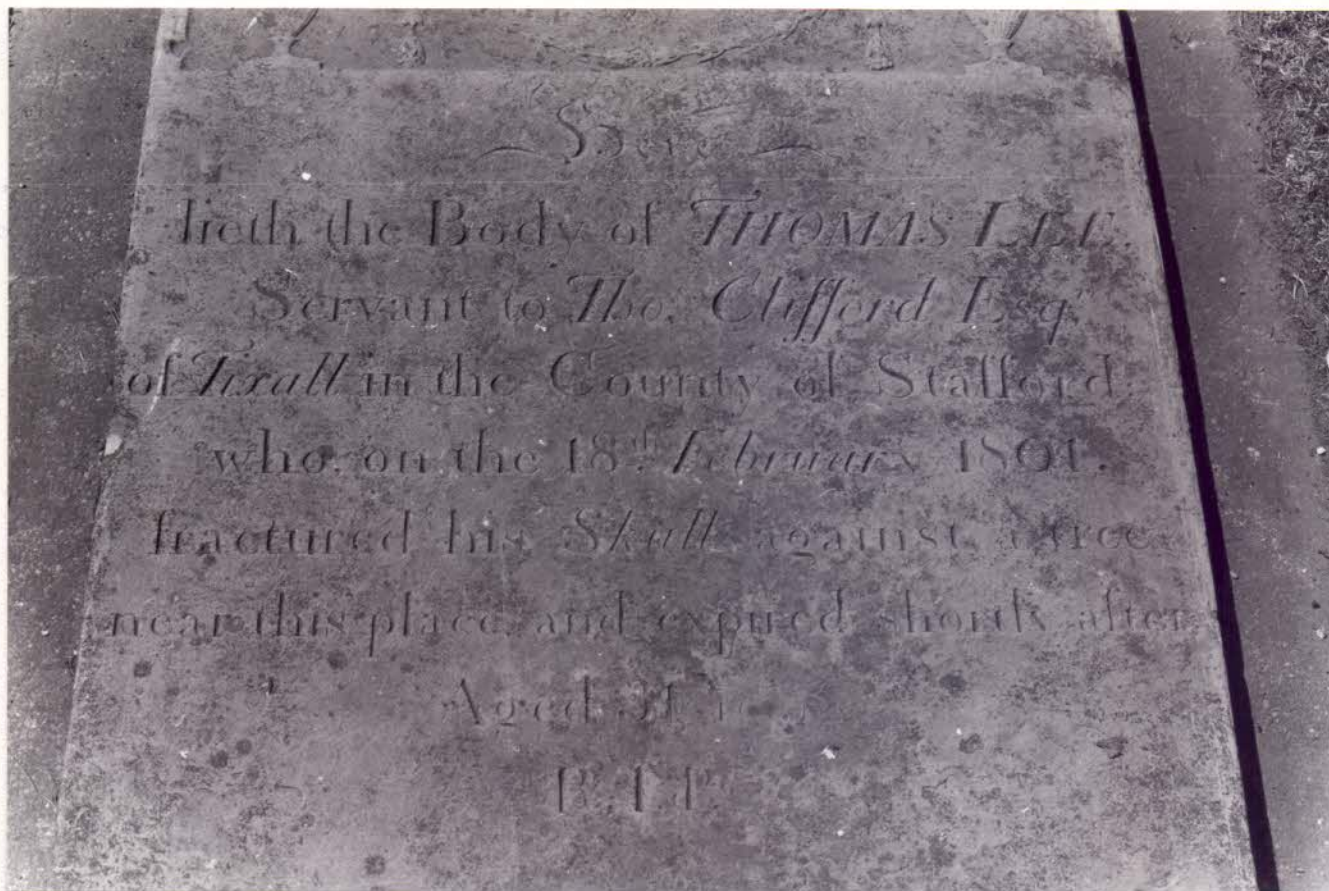 Here
lieth the Body of THOMAS LEE.
Servant to Tho. Clifford Esqr
of Tixall in the County of Stafford
who, on the 18th February 1801.
fractured his Skull against a tree
near this place and expired shortly after
Aged
R.I.P.